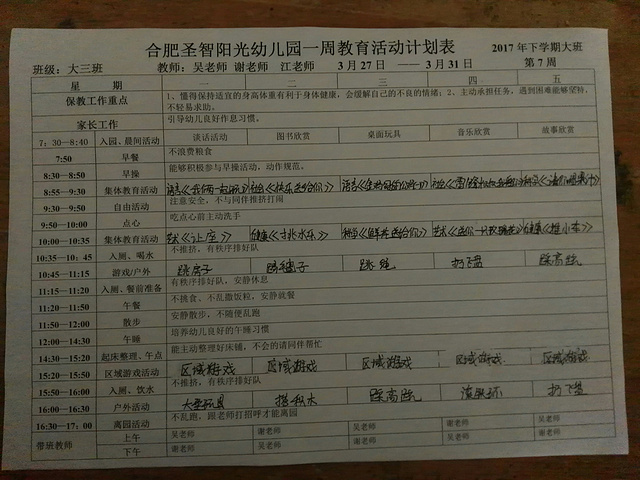 合肥圣智阳光幼儿园一周教育活动计划表 2017年下学期大班
班级：大三班 教师：吴老师 谢老师 江老师 3月27日 ——3月31日 第7周
星 期 一 二 三 四 五
保教工作重点 1、懂得保持适宜的身高体重有利于身体健康，会缓解自己的不良的情绪；2、主动承担任务，遇到困难能够坚持，
不轻易求助。
家长工作 引导幼儿良好作息习惯。
7：30—8:40 入园、晨间活动 谈话活动 图书欣赏 桌面玩具 音乐欣赏 故事欣赏
7:50 早餐 不浪费粮食
8:30—8:50 早操 能够积极参与早操活动，动作规范。
8:55—9:30 集体教育活动
9:30—9:50 自由活动 注意安全，不与同伴推挤打闹
9:50—10:00 点心 吃点心前主动洗手
10:00—10:35 集体教育活动 艺术《让座》 健康
10:35—10：45 入厕、喝水 不推挤，有秩序排好队
10:45—11:15 游戏/户外 跳房子 踢毽子 跳绳 扔飞盘 踩高跷
11:15—11:20 入厕、餐前准备 有秩序排好队，安静休息
11:20—11:50 午餐 不挑食、不乱撒饭粒，安静就餐
11:50—12:00 散步 安静散步，不随便乱跑
12:00—14:30 午睡 培养幼儿良好的午睡习惯
14:30—15:20 起床整理、午点 能主动整理好床铺，不会的请同伴帮忙
15:20—15:50 区域游戏活动 区域游戏 区域游戏 区域游戏 区域游戏 区域游戏
15:50—16:00 入厕、饮水 不推挤，有秩序排好队
16:00—16:30 户外活动 大型玩具 搭积木 踩高跷 滚铁环 扔飞盘
16:30—17：00 离园活动 不乱跑，跟老师打招呼才能离园
带班教师 上午 吴老师 谢老师 吴老师 谢老师 吴老师
下午 谢老师 吴老师 谢老师